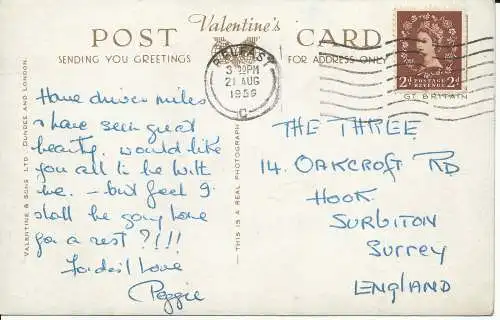 POST Valentine's CARD
SENDING YOU GREETINGS
FOR ADDRESS ONLY
BELFAST
3 PM
21 AUG
1956
C
2D POSTAGE REVENUE 2D
GT. BRITAIN
Have driven miles
& have seen great
beauty. would like
you all to be with
me. - but feel I
shall be going home
for a rest ?!!!
Fondest Love
Peggie
THE THREE
14. OAKCROFT RD
HOOK
SURBITON
SURREY
ENGLAND
VALENTINE & SONS LTD. DUNDEE AND LONDON.
THIS IS A REAL PHOTOGRAPH